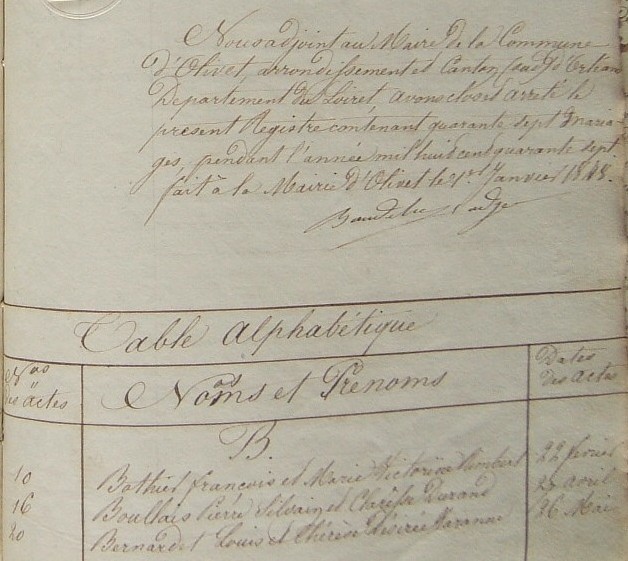 Nous adjoint au Maire de la Commune
d'Olivet, arrondissement et Canton sud d'Orléan
Département du Loiret, avons clos et arrêté le
présent Registre contenant quarante sept Maria-
ges, pendant l'année mil huit cent quarante sept
fait à la Mairie d'Olivet le 1er Janvier 1848.
Table alphabétique
Nos
des actes
Noms et Prénoms
Dates
des actes
B.
10 Bothiet francois et Marie Victorine 22 février
16 Boullais Pierre Silvain et Clarisse Durand 25 avril
20 Bernardet Louis et Thérèse Désirée 26 Mai